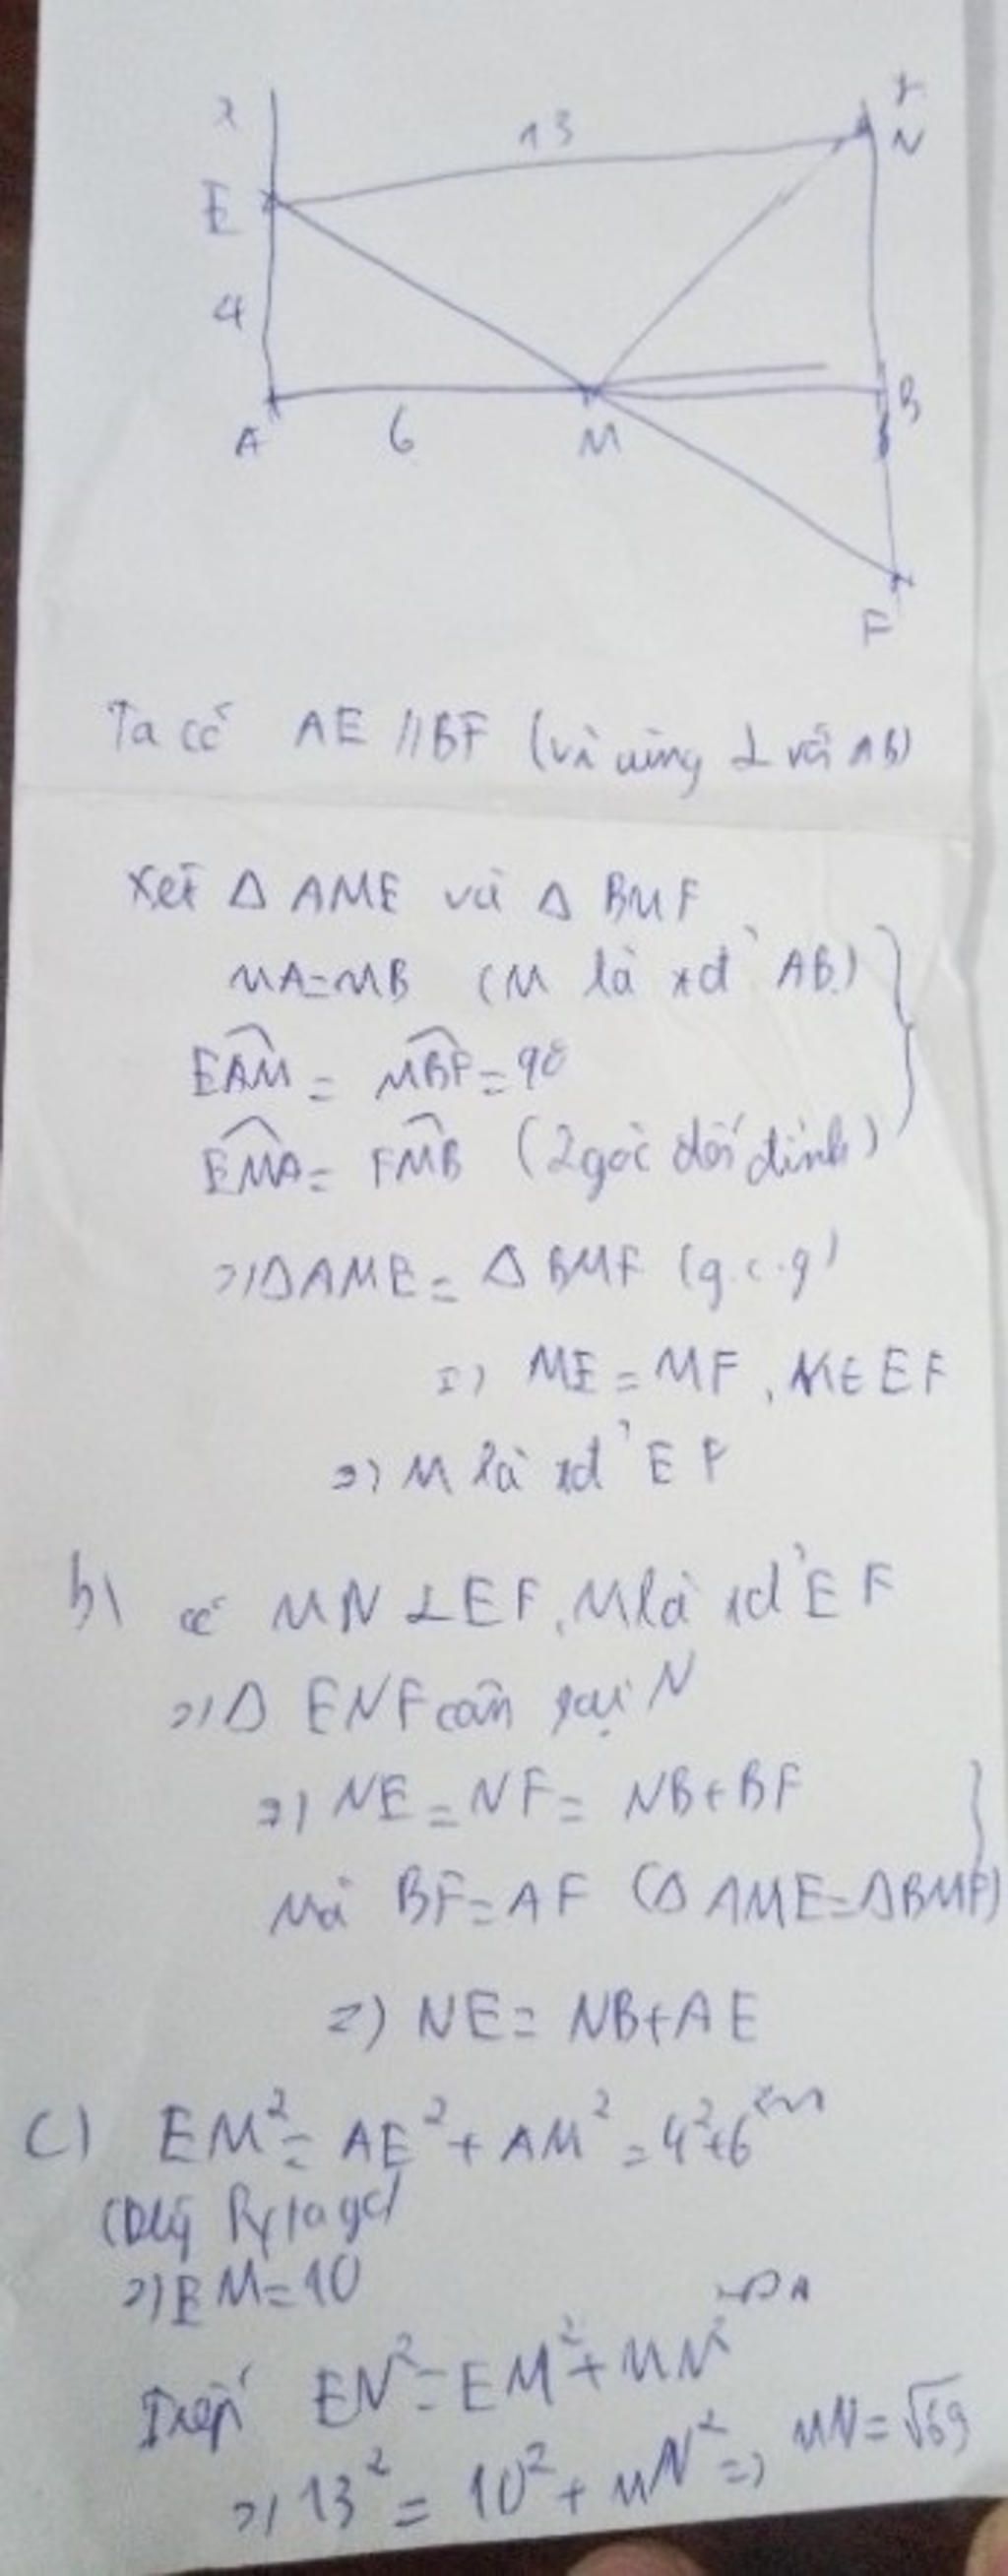 x
13
y
N
E
4
A
6
M
B
F
Ta có AE // BF (vì cùng ⊥ với AB)
Xét Δ AME và Δ BMF
MA=MB (M là tđ' AB)
EAM = MBF = 90
EMA = FMB (2 góc đối đỉnh)
=> Δ AME = Δ BMF (g.c.g)
=> ME = MF, M ∈ EF
=> M là tđ' EF
b) có MN ⊥ EF, M là tđ' EF
=> Δ ENF cân tại N
=> NE = NF = NB + BF
Mà BF = AF (Δ AME = Δ BMF)
=> NE = NB + AE
c) EM² = AE² + AM² = 4² + 6²
(Đlý Pytago)
=> EM = 10
EN² = EM² + MN²
=> 13² = 10² + MN² => MN = √69